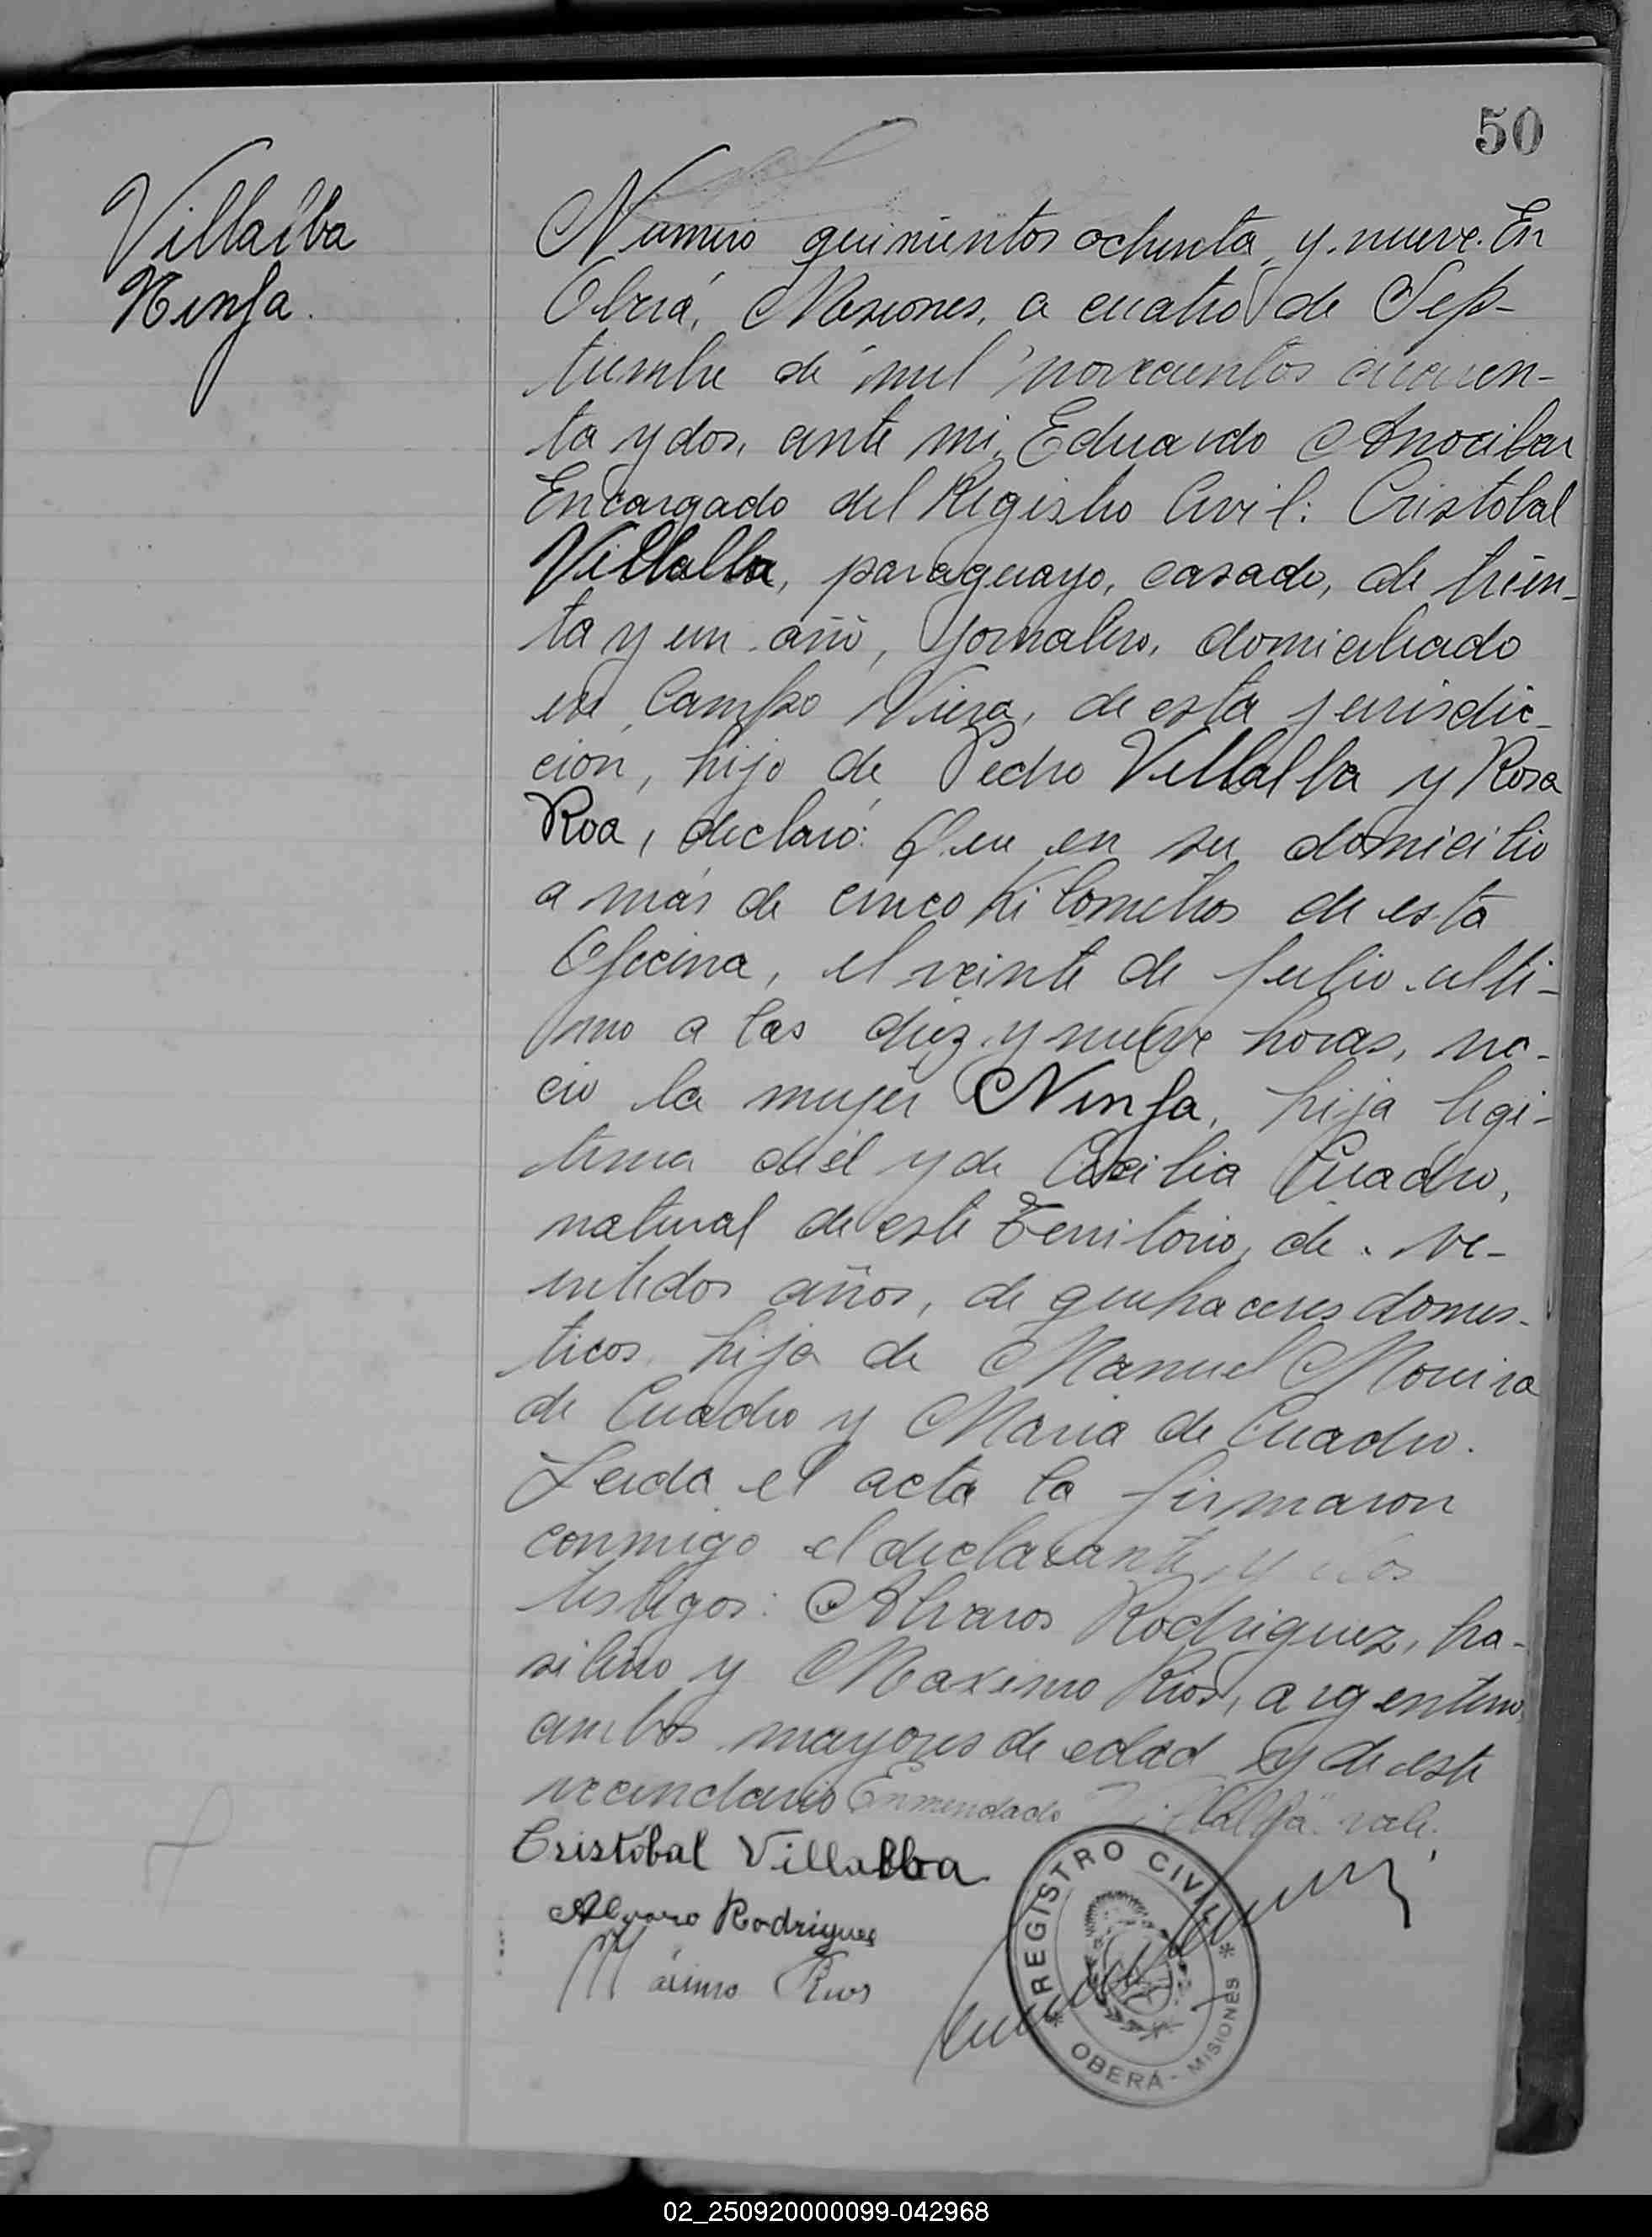 50
Villalba
Ninfa.
Número quinientos ochenta y nueve. En
Oberá, Misiones, a cuatro de Sep-
tiembre de mil novecientos cincuen-
ta y dos, ante mi, Eduardo Anocibar
Encargado del Registro Civil: Cristobal
Villalba, paraguayo, casado, de trein-
ta y un año, jornalero, domiciliado
en Campo Viera, de esta jurisdic-
ción, hijo de Pedro Villalba y Rosa
Roa, declaró: Que en su domicilio
a más de cinco kilometros de esta
Oficina, el veinte de Julio ulti-
mo a las diez y nueve horas, na-
ció la mujer Ninfa, hija legi-
tima de él y de Cecilia Cuadro,
natural de este Territorio, de ve-
intidos años, de quehaceres domes-
ticos, hija de Manuel Moreira
de Cuadro y Maria de Cuadro.
Leida el acta la firmaron
conmigo el declarante y los
testigos: Alvaros Rodriguez, bra-
silero y Maximo Rios, argentino,
ambos mayores de edad y de este
vecindario Enmendado "Villalba" vale.
Cristóbal Villalba
Alvaro Rodrigues
Máximo Rios
REGISTRO CIVIL
* OBERÁ - MISIONES *
02_250920000099-042968